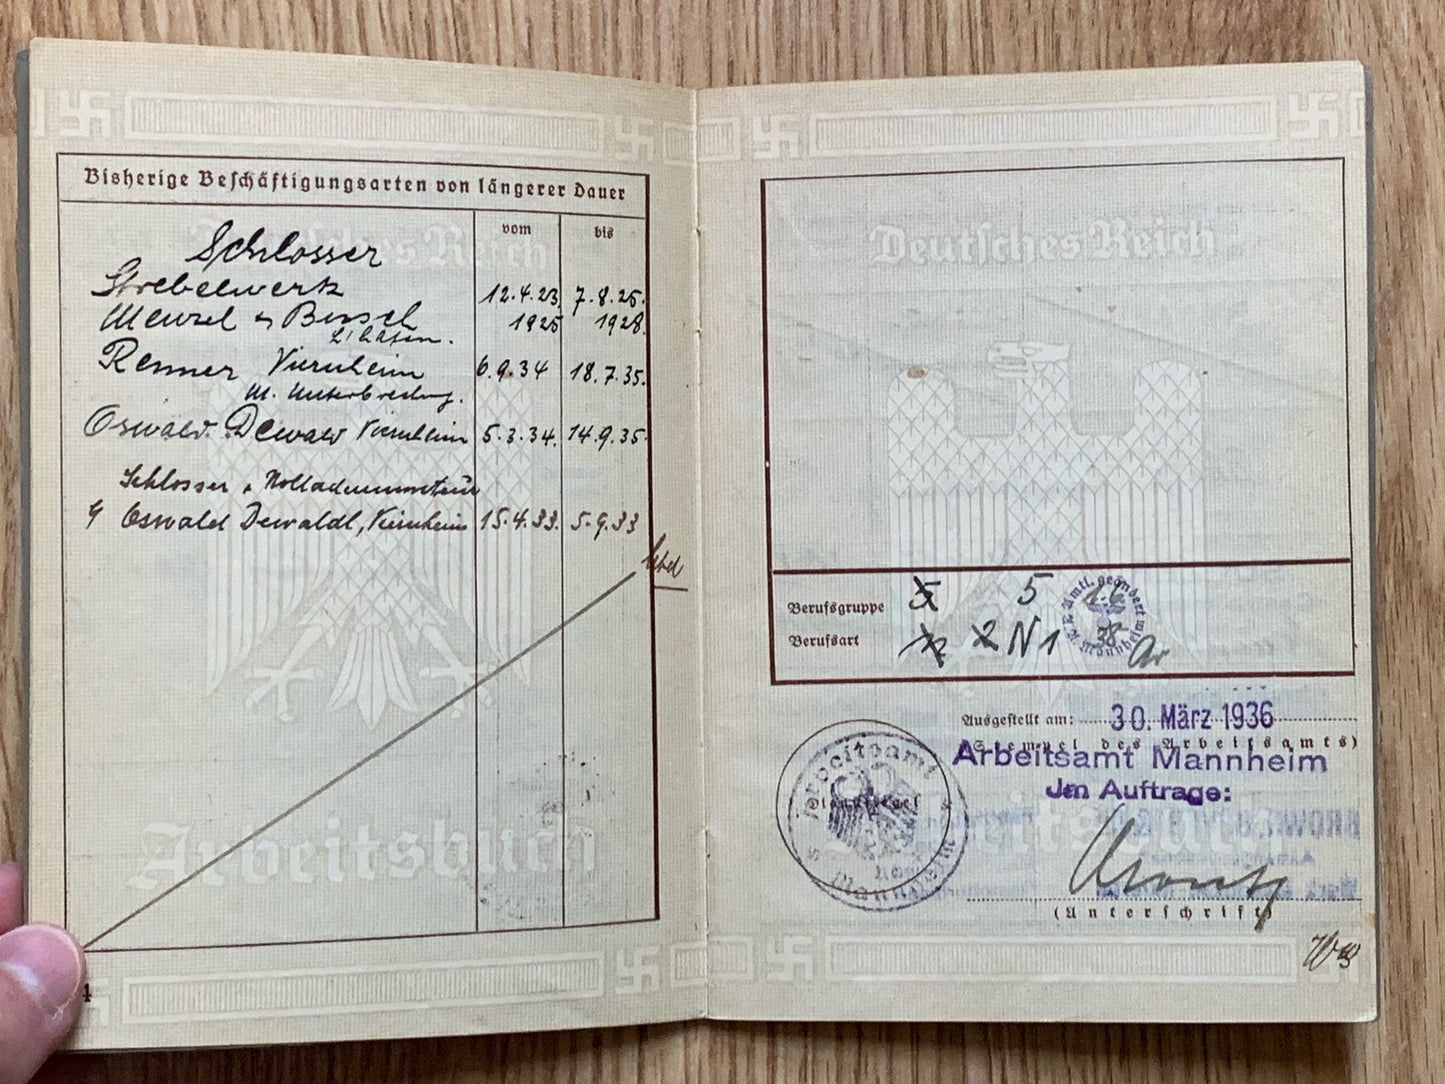 Bisherige Beschäftigungsarten von längerer Dauer
vom bis
Schlosser
Strebelwerk 12.4.23 7.8.25.
Menzel & 1925 1928.
L'hafen.
Renner Viernheim 6.9.34 18.7.35.
m. Unterbrechg.
Oswald Dewald Viernheim 5.3.34. 14.9.35.
Schlosser u. Rolladenmonteur
Oswald Dewaldt, Viernheim 15.4.33. 5.9.33
4
Deutsches Reich
Arbeitsbuch
Deutsches Reich
Berufsgruppe 5 5
Berufsart 2 N 1
Amtl. geändert
Mannheim
1.6
38
Ausgestellt am: 30. März 1936
(Stempel des Arbeitsamts)
Arbeitsamt Mannheim
Im Auftrage:
Arbeitsamt
Dienstsiegel
Mannheim
Arbeitsbuch
(Unterschrift)